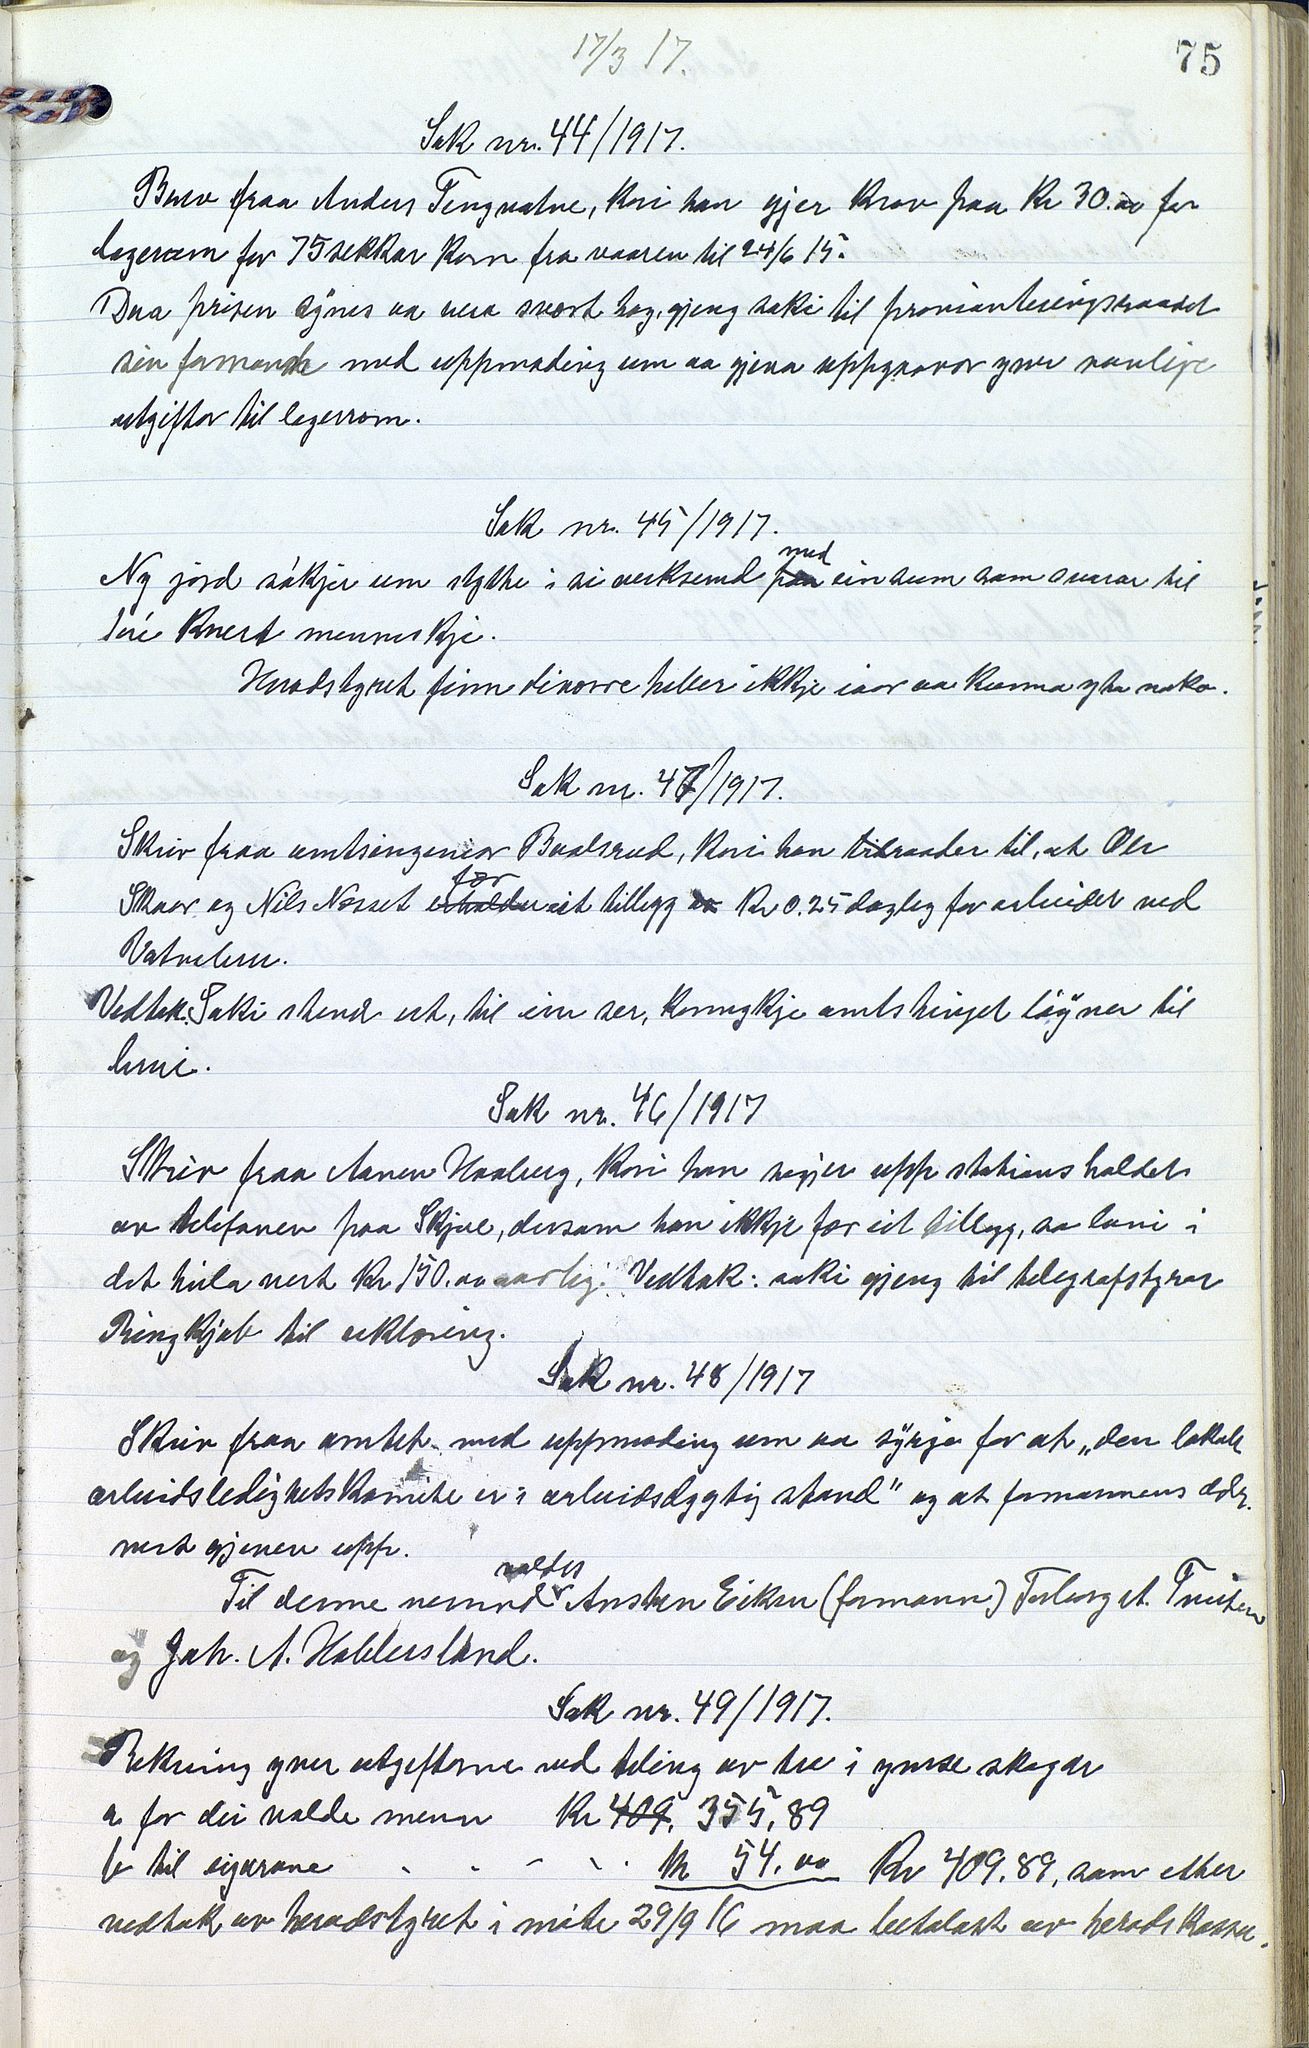 75
17/3 17.
Sak nr. 44/1917.
Brev fraa Anders Tengvatne, kori han gjer krav paa Kr 30.oo for
lagerom for 75 sekkar korn fra vaaren til 24/6 15.
Daa prisen sÿnes aa vera svært høg, gjeng saki til provianteringsraadet
sin formand med uppmoding um aa gjeva uppgaavor yver vanlige
utgiftor til lagerrom.
Sak nr. 45/1917.
Ny jord søkjer um stytte i si verksemd paa med ein sum som svarar til
1 øre kvert menneskje.
Heradstyret finn diverre heller ikkje iaar aa kunna yta noko.
Sak nr. 47/1917.
Skriv fraa amtsingeniør Baalsrud, kori han tilraader til, at Ole
Skaar og Nils Nesset erholder fær eit tillegg av Kr 0.25 dagleg for arbeidet ved
Vatnelinn.
Vedtak: Saki stend ut, til ein ser, korvgkje amtstinget løÿver til
linni.
Sak nr. 46/1917
Skriv fraa Aanen Haaberg, kori han segjer upp stationshaldet
av telefonen paa Skjve, dersom han ikkje fær eit tillegg, so løni i
det heila vert Kr 150.oo aarleg. Vedtak: saki gjeng til telegrafstyrar
Ringkjøb til uklæring.
Sak nr. 48/1917
Skriv fraa amtet med uppmoding um aa sÿrgja for at „den lokale
arbeidsledighetskomite er i arbeidsdygtig stand" og at formannens adr.
vert gjeven upp.
Til denne nemnd valdes Ansten Eiken (formann) Torborg st. Tveiten
og Joh. A. Hallersland.
Sak nr. 49/1917.
Rekning yver utgifterne ved teling av tre i ymse skogar
a for dei valde menn Kr 409, 355,89
b til eigarane " " " " Kr 54.oo Kr 409.89, som etter
vedtak av heradstyret i møte 29/9 16 maa betalast av heradskassa.